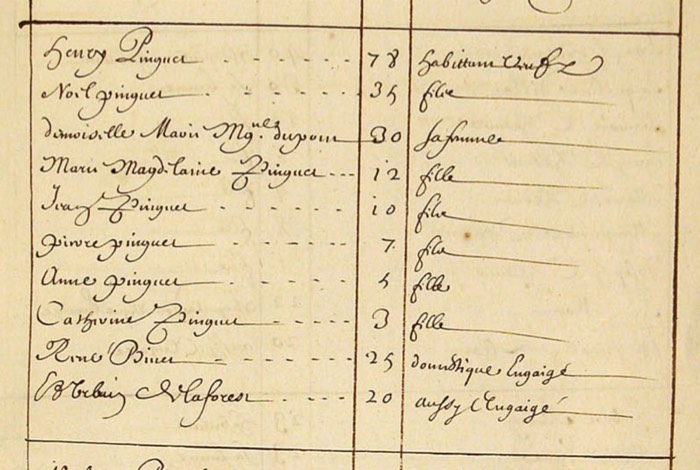 Henry Pinguet 78 habittant veuf
Noël pinguet 35 filz
demoiselle Marie Mgne dupont 30 sa femme
Marie Magdelaine Pinguet 12 fille
Jean Pinguet 10 filz
pierre pinguet 7 filz
Anne pinguet 5 fille
Catherine Pinguet 3 fille
René Binet 25 domestique Engaigé
Urbain delaforest 20 aussy Engaigé